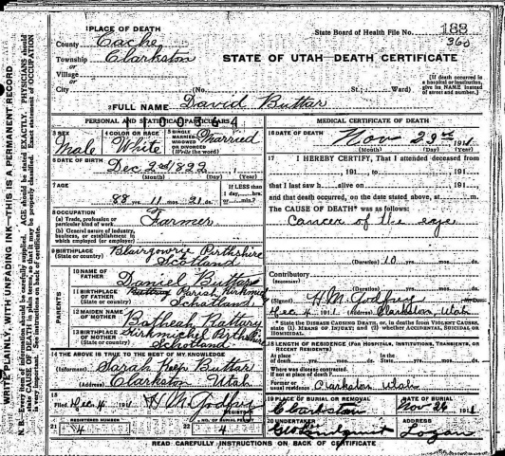 1 PLACE OF DEATH
State Board of Health File No. 188
360
County Cache
Township Clarkston
or
Village
or
City (No. St.; Ward)
STATE OF UTAH—DEATH CERTIFICATE
[If death occurred in a hospital or institution, give its NAME instead of street and number.]
2 FULL NAME David Buttar
00344
PERSONAL AND STATISTICAL PARTICULARS
3 SEX
Male
4 COLOR OR RACE
White
5 SINGLE, MARRIED, WIDOWED OR DIVORCED (Write the word)
Married
6 DATE OF BIRTH
Dec 2nd 1822
(Month) (Day) (Year)
7 AGE
88 yrs. 11 mos. 21 ds.
If LESS than 1 day, hrs. or min.?
8 OCCUPATION
(a) Trade, profession or particular kind of work
(b) General nature of industry, business, or establishment in which employed (or employer)
Farmer
9 BIRTHPLACE
(State or country)
Blairgowrie Perthshire
Scotland
PARENTS
10 NAME OF FATHER
Daniel Buttar
11 BIRTHPLACE OF FATHER
(State or country)
Parish
Schotland
12 MAIDEN NAME OF MOTHER
Batheah Rattary
13 BIRTHPLACE OF MOTHER
(State or country)
Kirkmichel Perthshire
Schotland
14 THE ABOVE IS TRUE TO THE BEST OF MY KNOWLEDGE
(Informant) Sarah Keep Buttar
(Address) Clarkston Utah
15
Filed Dec 4 1911 H M Godfrey
REGISTRAR
21 REGISTERED NUMBER
4
22
4
MEDICAL CERTIFICATE OF DEATH
16 DATE OF DEATH
Nov 23rd 1911
(Month) (Day) (Year)
17 I HEREBY CERTIFY, That I attended deceased
from 191 , to 191
that I last saw h alive on 191
and that death occurred, on the date stated above, at m.
The CAUSE OF DEATH* was as follows:
Cancer of the eye
(Duration) 10 yrs. mos. ds.
Contributory
(Duration) yrs. mos. ds.
(Signed) H M Godfrey
Dec 4 1911 (Address) Clarkston, Utah
* State the DISEASE CAUSING DEATH, or, in deaths from VIOLENT CAUSES, state (1) MEANS OF INJURY; and (2) whether ACCIDENTAL, SUICIDAL, or HOMICIDAL.
18 LENGTH OF RESIDENCE (FOR HOSPITALS, INSTITUTIONS, TRANSIENTS, OR RECENT RESIDENTS)
At place of death yrs. mos. ds. In the State yrs. mos. ds.
Where was disease contracted,
if not at place of death?
Former or usual residence Clarkston Utah
19 PLACE OF BURIAL OR REMOVAL
Clarkston
DATE OF BURIAL
Nov 26 1911
20 UNDERTAKER
ADDRESS
Logan
READ CAREFULLY INSTRUCTIONS ON BACK OF CERTIFICATE
WRITE PLAINLY, WITH UNFADING INK—THIS IS A PERMANENT RECORD
N. B. Every item of information should be carefully supplied. AGE should be stated EXACTLY. PHYSICIANS should state CAUSE OF DEATH in plain terms, so that it may be properly classified. Exact statement of OCCUPATION is very important. See instructions on back of certificate.